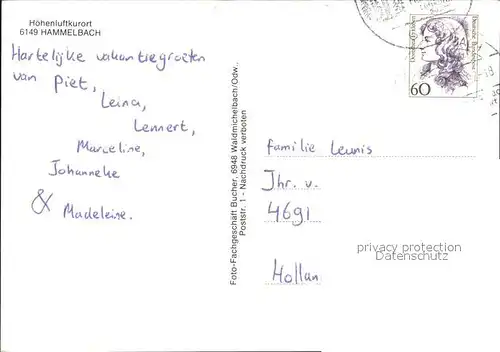 Höhenluftkurort
6149 HAMMELBACH
Hartelijke vakantiegroeten
van Piet,
Leina,
Lennert,
Marceline,
Johanneke
& Madeleine.
Foto-Fachgeschäft Bucher, 6948 Waldmichelbach/Odw.,
Poststr. 1 - Nachdruck verboten
60
Familie Leunis
Jhr. v.
4691
Hollan
privacy protection
Datenschutz